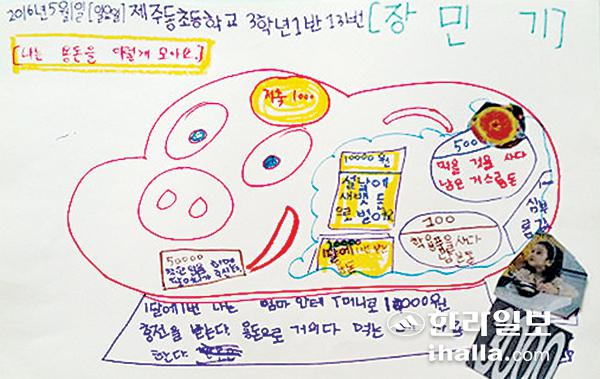 2016년 5월 1일 [일요일] 제주동초등학교 3학년 1반 13번 [장민기]
[나는 용돈을 이렇게 모아요.]
저축 1000
10000원
설날에
새뱃돈
으로 벌어요
500
먹을 것을 사다
남은 거스름돈
100
학용품을 사다
남은 돈
10000
1달에 1번 받는
용돈
50000
심부
름
1달에 1번 나는 엄마 한테 T머니로 10000원
충전을 받는다. 용돈으로 거의다
한다.
한라일보
ihalla.com